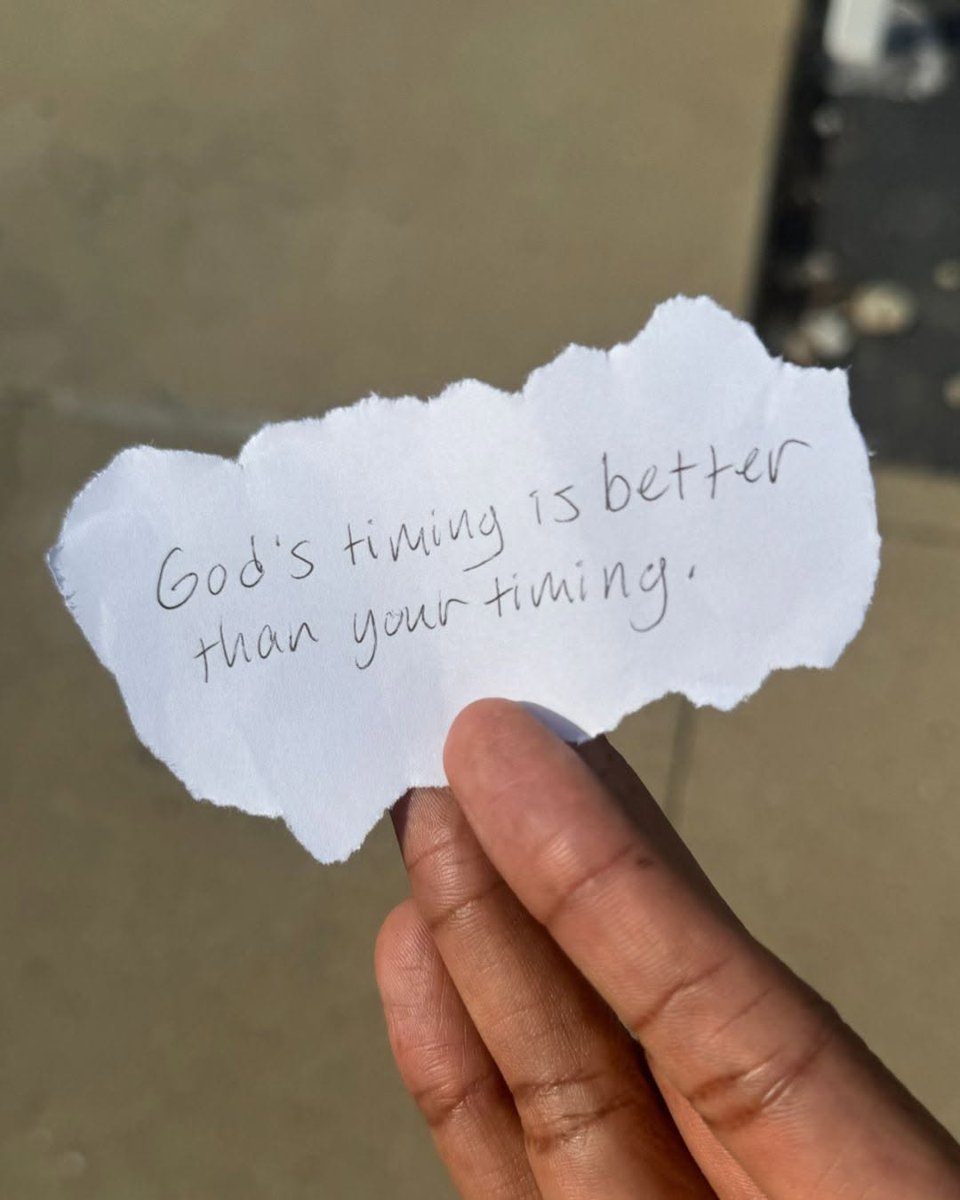 God's timing is better
than your timing.